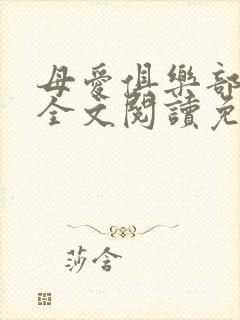 母愛俱樂部
全文閱讀免
莎含